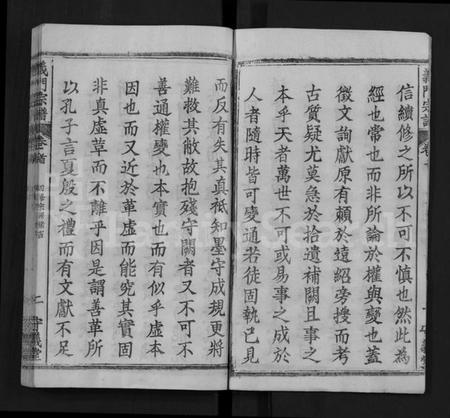 信續修之所以不可不慎也然此為
經也常也而非所論於權與變也蓋
徵文詢獻原有賴於遠紹旁搜而考
古質疑尤莫急於拾遺補闕且事之
本乎天者萬世不可或易事之成於
人者隨時皆可變通若徒固執己見
而反有失其真祗知墨守成規更將
難救其敝故抱殘守闕者又不可不
善通權變也本實也而有似乎虛本
因也而又近於革虛而能究其實固
非真虛革而不離乎因是謂善革所
以孔子言夏殷之禮而有文獻不足
義門宗譜
卷首
二
義門宗譜
卷首